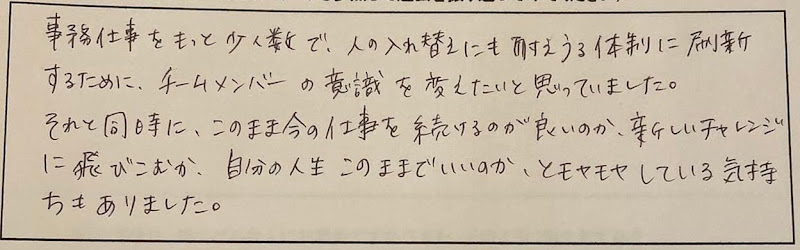 事務仕事をもっと少人数で、人の入れ替えにも耐えうる体制に刷新
するために、チームメンバーの意識を変えたいと思っていました。
それと同時に、このまま今の仕事を続けるのが良いのか、新しいチャレンジ
に飛びこむか、自分の人生このままでいいのか、とモヤモヤしている気持
ちもありました。